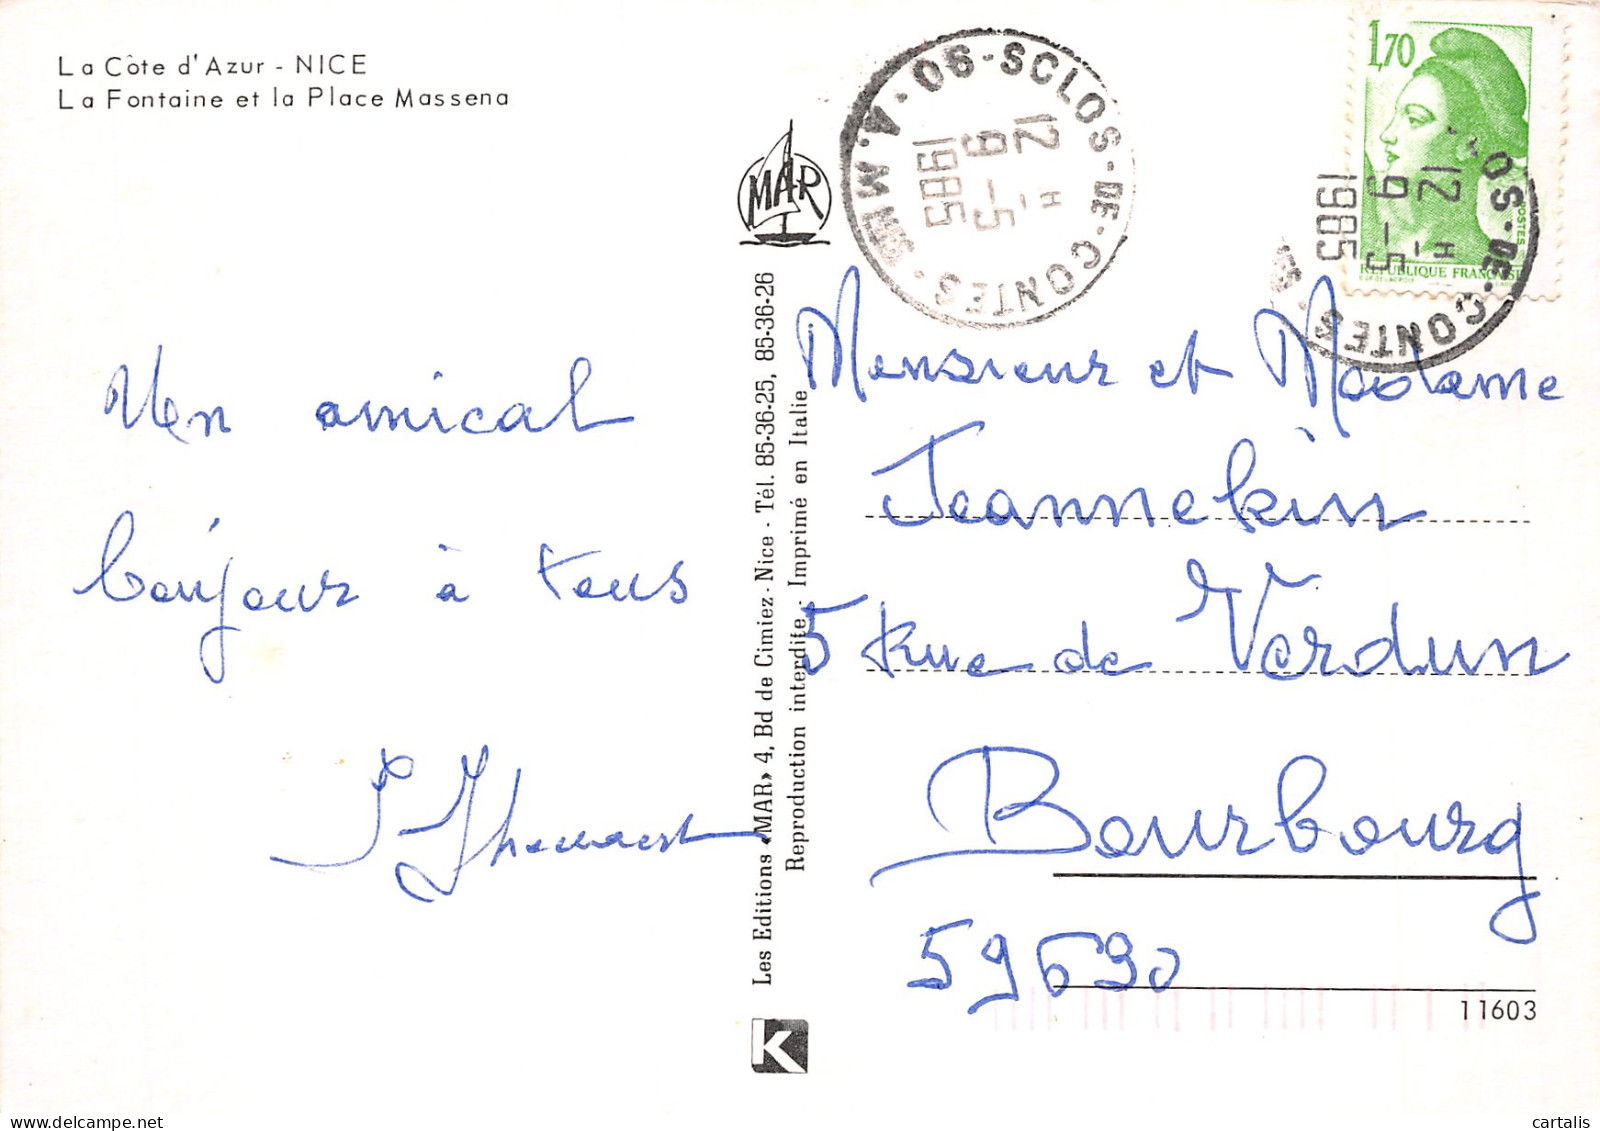 La Côte d'Azur - NICE
La Fontaine et la Place Massena
Un amical
bonjour à tous
MAR
Les Editions «MAR» 4, Bd de Cimiez - Nice - Tél. 85-36-25, 85-36-26
Reproduction interdite - Imprimé en Italie
K
06-SCLOS-DE-CONTES
A.MMES
12 H
9-5
1985
1,70
POSTES
REPUBLIQUE FRANÇAISE
OS-DE-CONTES
12 H
9-5
1985
Monsieur et Madame
Jeannekin
5 Rue de Verdun
Bourbourg
59630
11603
cartalis